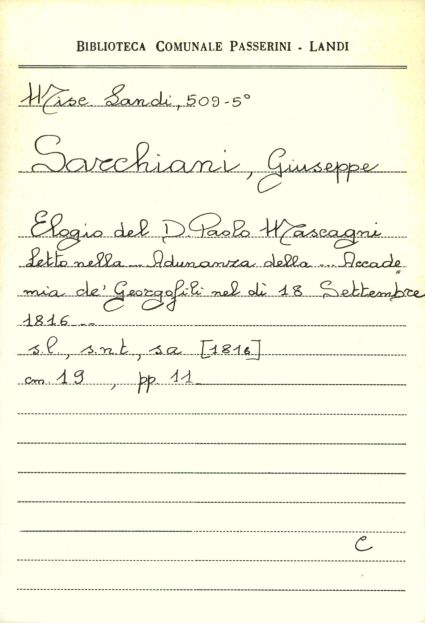 BIBLIOTECA COMUNALE PASSERINI - LANDI
Misc. Landi, 509-5°
Sarchiani, Giuseppe
Elogio del D. Paolo Mascagni
letto nella ... Adunanza della ... Accade=
mia de' Georgofili nel dì 18 Settembre
1816 ...
s.l., s.n.t., s.a. [1816]
cm. 19 , pp. 11
C